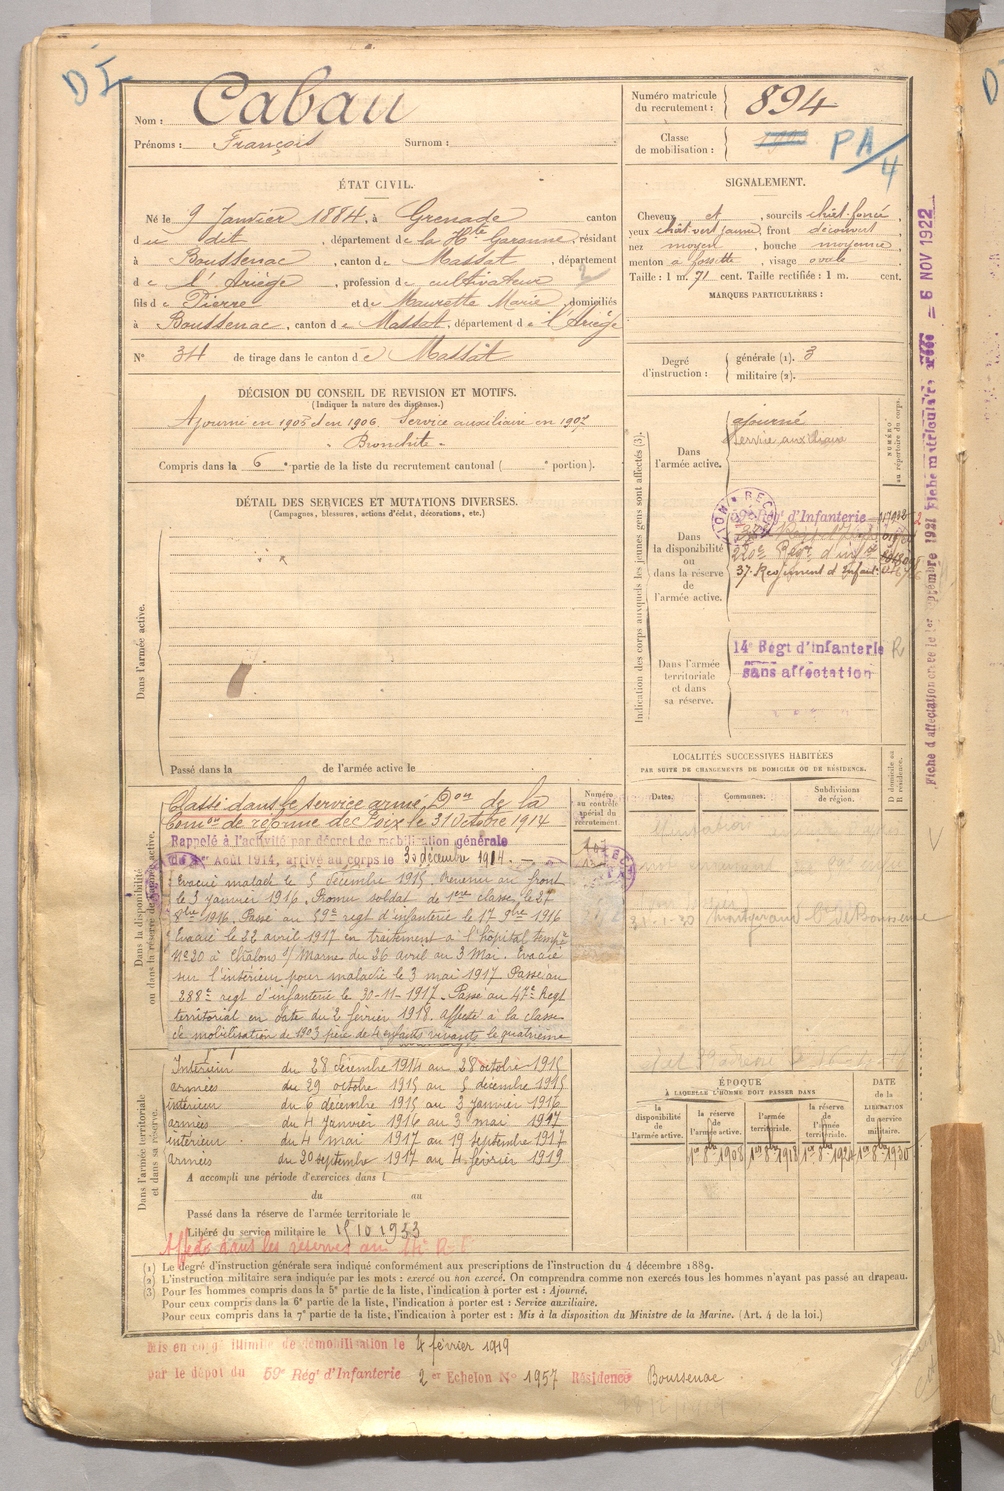 DI
Nom : Cabau
Prénoms : François Surnom :
Numéro matricule du recrutement : 894
Classe de mobilisation :
PA/4
ÉTAT CIVIL.
Né le 9 Janvier 1884, à Grenade canton
du dit, département de la Hte Garonne, résidant
à Boussenac, canton de Massat, département
de l'Ariège, profession de cultivateur 2
fils de Pierre et de Maurette Marie, domiciliés
à Boussenac, canton de Massat, département de l'Ariège
N° 34 de tirage dans le canton de Massat
SIGNALEMENT.
Cheveux et , sourcils chât. foncé,
yeux chât. vert jaune, front découvert
nez moyen, bouche moyenne,
menton à fossette, visage ovale
Taille : 1 m. 71 cent. Taille rectifiée : 1 m. cent.
MARQUES PARTICULIÈRES :
Degré d'instruction : générale (1). 3
militaire (2).
DÉCISION DU CONSEIL DE REVISION ET MOTIFS.
(Indiquer la nature des dispenses.)
Ajourné en 1905 et en 1906. Service auxiliaire en 1907
" Bronchite "
Compris dans la 6e partie de la liste du recrutement cantonal ( e portion).
DÉTAIL DES SERVICES ET MUTATIONS DIVERSES.
(Campagnes, blessures, actions d'éclat, décorations, etc.)
Dans l'armée active.
Passé dans la de l'armée active le
Indication des corps auxquels les jeunes gens sont affectés (3).
NUMÉRO au répertoire du corps.
Dans l'armée active.
ajourné
Service auxiliaire
Dans la disponibilité ou dans la réserve de l'armée active.
59e Régt d'Infanterie
220e Régt d'infie
37e Regiment d'Infant.
Dans l'armée territoriale et dans sa réserve.
14e Régt d'infanterie R
sans affectation
Fiche d'affectation créée le 1er septembre 1921 Fiche matriculaire créée = 6 NOV 1922
LOCALITÉS SUCCESSIVES HABITÉES
PAR SUITE DE CHANGEMENTS DE DOMICILE OU DE RÉSIDENCE.
Dates. Communes. Subdivisions de région. D domicile ou R résidence.
Dans la disponibilité ou dans la réserve de l'armée active.
Numéro au contrôle spécial du recrutement.
Classé dans le service armé, Don de la
Comon de réforme de Foix le 31 Octobre 1914
Rappelé à l'activité par décret de mobilisation générale
du 1er Août 1914, arrivé au corps le 30 décembre 1914.
Evacué malade le 5 décembre 1915. Revenu au front
le 3 janvier 1916. Promu soldat de 1ère classe le 27
8bre 1916. Passé au 59e regt d'infanterie le 17 9bre 1916
Evacué le 22 avril 1917 en traitement à l'hôpital tempre
N°20 à Châlons s/ Marne du 26 avril au 3 Mai. Evacué
sur l'intérieur pour maladie le 3 mai 1917 Passé au
288e regt d'infanterie le 30-11-1917. Passé au 47e Regt
territorial en date du 2 février 1918. affecté à la classe
de mobilisation de 1903 père de 4 enfants vivants le quatrième
Dans l'armée territoriale et dans sa réserve.
Intérieur du 28 décembre 1914 au 28 octobre 1915
armées du 29 octobre 1915 au 5 décembre 1915
intérieur du 6 décembre 1915 au 3 janvier 1916
armées du 4 janvier 1916 au 3 mai 1917
intérieur du 4 mai 1917 au 19 septembre 1917
armées du 20 septembre 1917 au 4 février 1919
A accompli une période d'exercices dans l
du au
Passé dans la réserve de l'armée territoriale le
Libéré du service militaire le 15 10 1933
Affecté dans les réserves au
ÉPOQUE
À LAQUELLE L'HOMME DOIT PASSER DANS
DATE de la LIBÉRATION du service militaire.
la disponibilité de l'armée active. la réserve de l'armée active. l'armée territoriale. la réserve de l'armée territoriale.
1er 8bre 1908 1er 8bre 1918 1er 8bre 1924 1er 8bre 1930
(1) Le degré d'instruction générale sera indiqué conformément aux prescriptions de l'instruction du 4 décembre 1889.
(2) L'instruction militaire sera indiquée par les mots : exercé ou non exercé. On comprendra comme non exercés tous les hommes n'ayant pas passé au drapeau.
(3) Pour les hommes compris dans la 5e partie de la liste, l'indication à porter est : Ajourné.
Pour ceux compris dans la 6e partie de la liste, l'indication à porter est : Service auxiliaire.
Pour ceux compris dans la 7e partie de la liste, l'indication à porter est : Mis à la disposition du Ministre de la Marine. (Art. 4 de la loi.)
Mis en congé illimité de démobilisation le 4 février 1919
par le dépôt du 59e Régt d'Infanterie 2er Echelon N° 1957 Résidence Boussenac